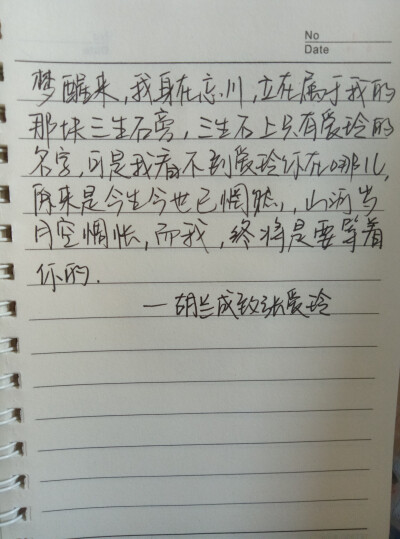 No
Date
梦醒来,我身在忘川,立在属于我的
那块三生石旁,三生石上只有爱玲的
名字,可是我看不到爱玲你在哪儿,
原来是今生今世已惘然,山河岁
月空惆怅,而我,终将是要等着
你的.
—胡兰成致张爱玲